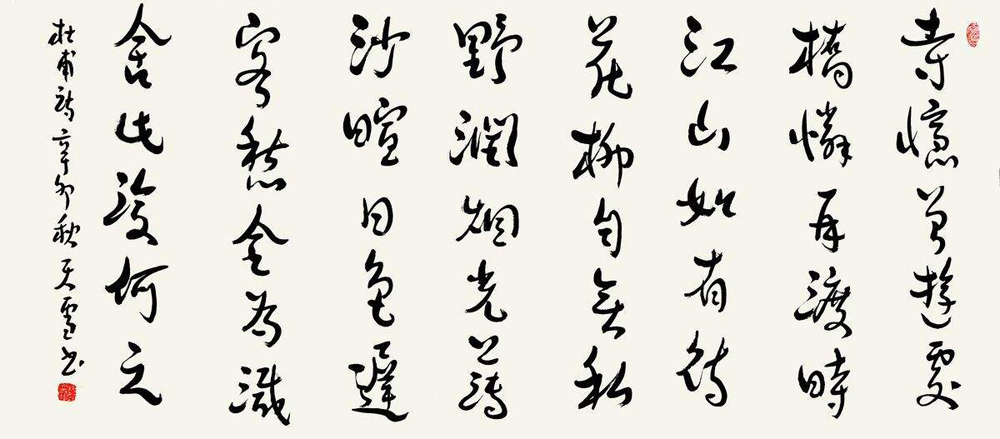 寺憶曾遊處
橋憐再渡時
江山如有待
花柳自無私
野潤烟光薄
沙暄日色遲
客愁全為減
舍此復何之
杜甫詩辛卯秋天雪書